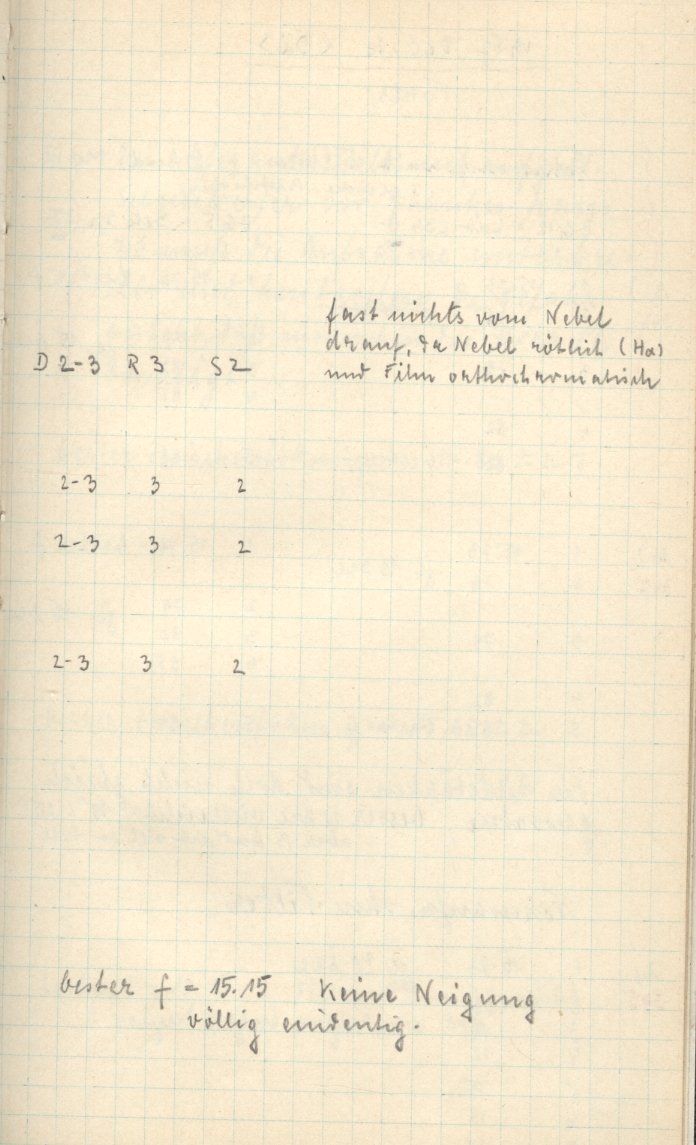 fast nichts vom Nebel
drauf, da Nebel rötlich (Hα)
und Film orthochromatisch
D 2-3 R 3 S 2
2-3 3 2
2-3 3 2
2-3 3 2
bester f = 15.15 Keine Neigung
völlig eindeutig.